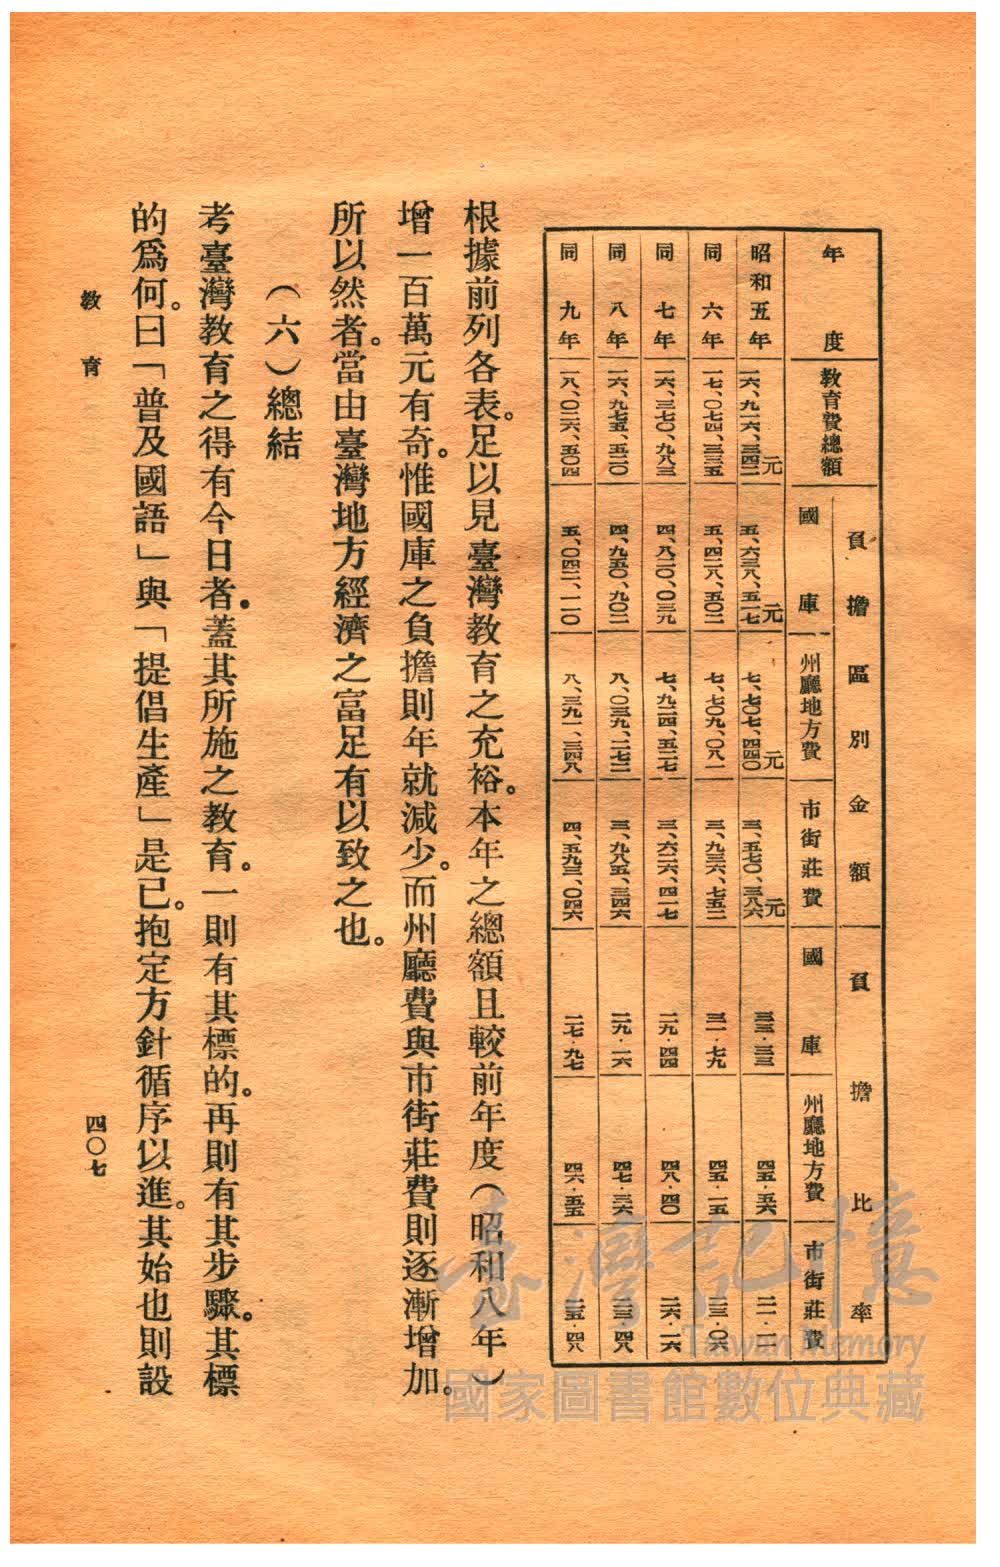 年度 教育費總額 負擔區別金額 負擔比率
國庫 州廳地方費 市街莊費 國庫 州廳地方費 市街莊費
昭和五年 一六、九一六、三四二元 五、六三八、五一七元 七、七〇七、四四〇元 三、五七〇、三八六元 三三・三三 四五・五六 二一・一一
同六年 一七、〇七四、三三五 五、四二八、五〇二 七、七〇九、〇八一 三、九三六、七五二 三一・七九 四五・一五 二三・〇六
同七年 一六、三七〇、九八三 四、八二〇、〇三九 七、九二四、五二七 三、六二六、四一七 二九・四四 四八・四〇 二六・一六
同八年 一六、九七五、五二〇 四、九五〇、九〇二 八、〇三九、二七二 三、九八五、三四六 二九・一六 四七・三六 二三・四八
同九年 一八、〇二六、五〇四 五、〇四二、一一〇 八、三九一、三四八 四、五九三、〇四六 二七・九七 四六・五五 二五・四八
根據前列各表。足以見臺灣教育之充裕。本年之總額且較前年度（昭和八年）
增一百萬元有奇。惟國庫之負擔則年就減少。而州廳費與市街莊費則逐漸增加。
所以然者。當由臺灣地方經濟之富足有以致之也。
（六）總結
考臺灣教育之得有今日者。蓋其所施之教育。一則有其標的。再則有其步驟。其標
的爲何。曰「普及國語」與「提倡生產」是已。抱定方針循序以進。其始也則設
教育
四〇七
臺灣記憶
Taiwan Memory
國家圖書館數位典藏